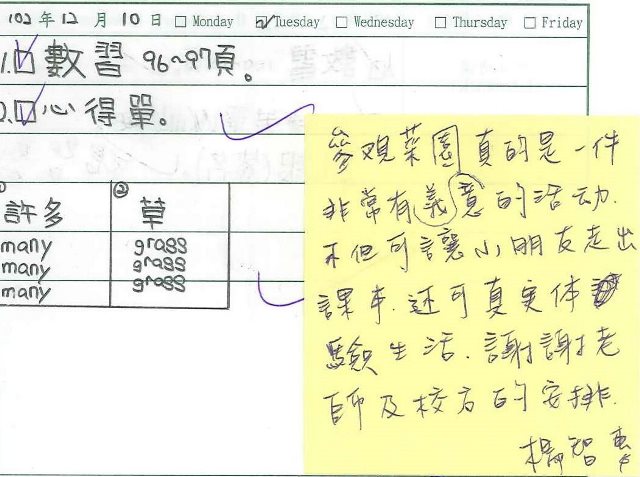 102年12月10日 □Monday ☑Tuesday □Wednesday □Thursday □Friday
1.☑數習 96~97頁。
2.☑心得單。
① ②
許多 草
many grass
many grass
many grass
參观菜園真的是一件
非常有義意的活动.
不但可讓小朋友走出
課本.还可真实体
驗生活.謝謝老
師及校方的安排.
楊智